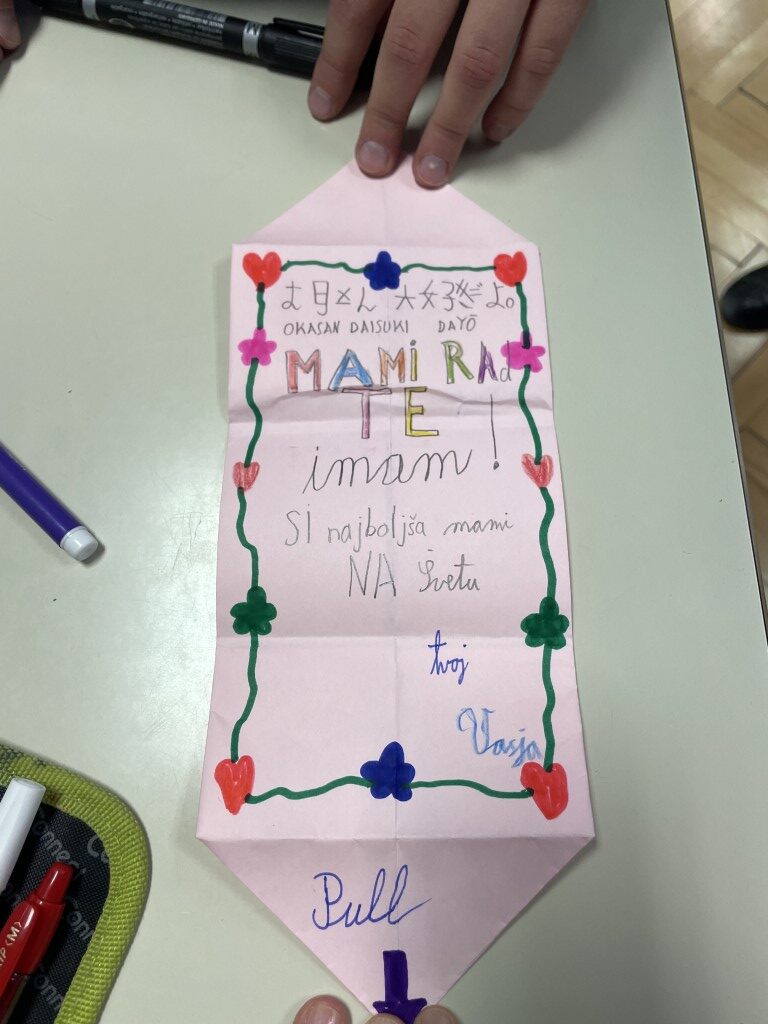 お母さん 大好きだよ。
OKASAN DAISUKI DAYŌ
MAMi RAd
TE
imam!
Si najboljša mami
NA Švetu
tvoj
Vasja
Pull